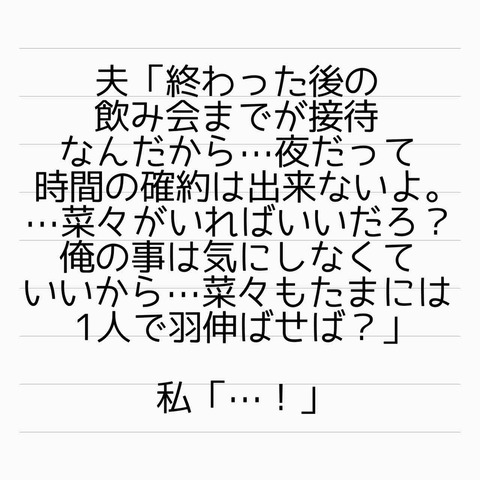 夫「終わった後の
飲み会までが接待
なんだから…夜だって
時間の確約は出来ないよ。
…菜々がいればいいだろ？
俺の事は気にしなくて
いいから…菜々もたまには
1人で羽伸ばせば？」
私「…！」